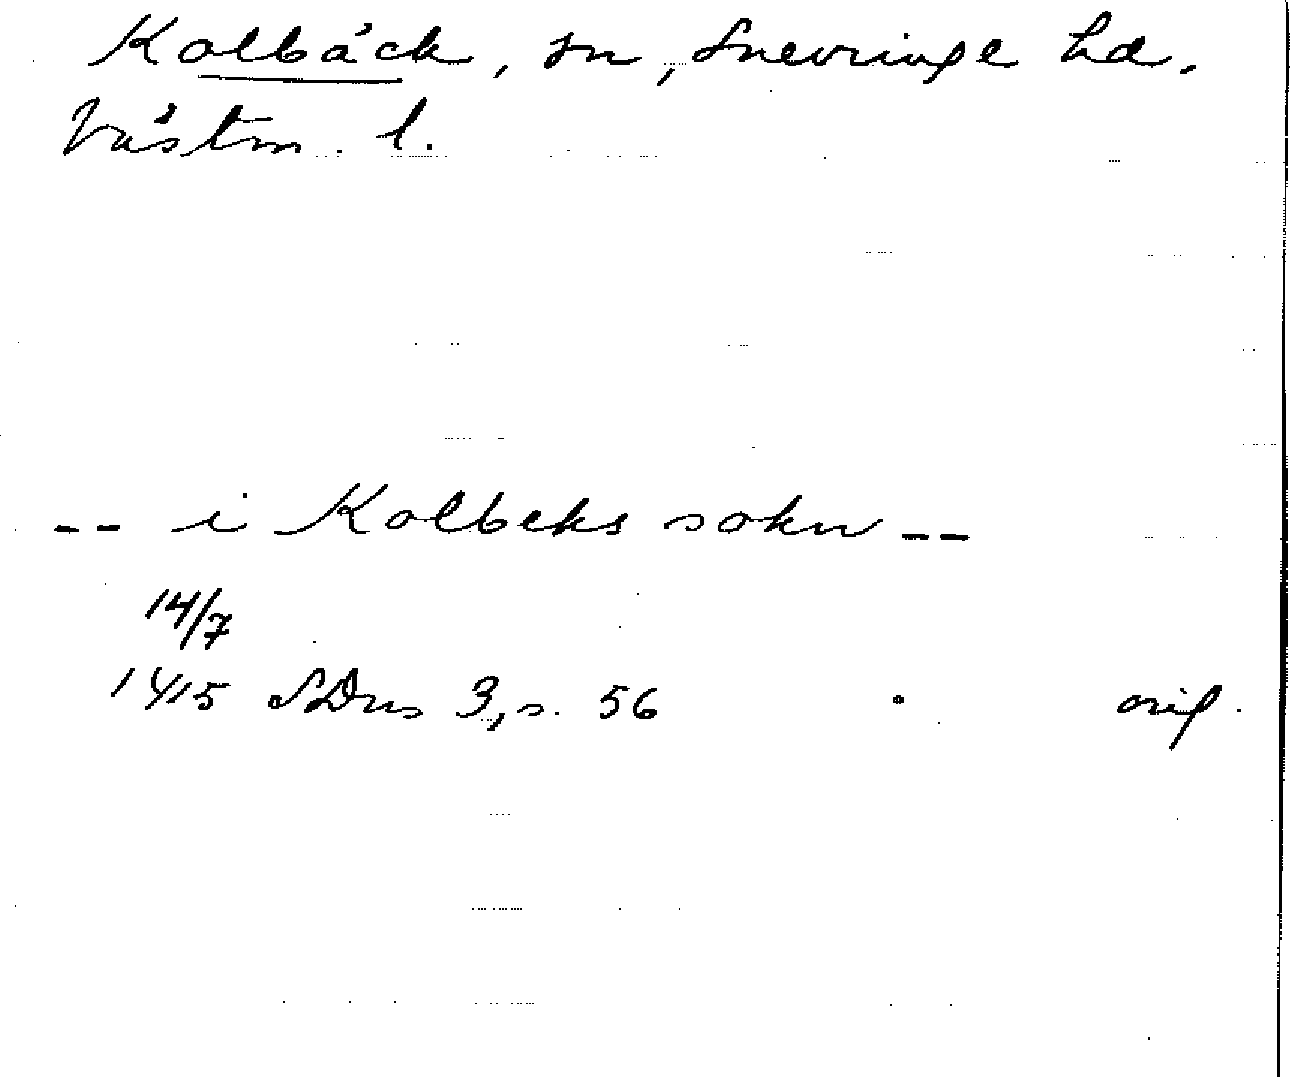 Kolbäck, sn, Snevringe hd.
Västm. l.
-- i Kolbeks sokn --
14/7
1415 SDns 3, s. 56 orig.